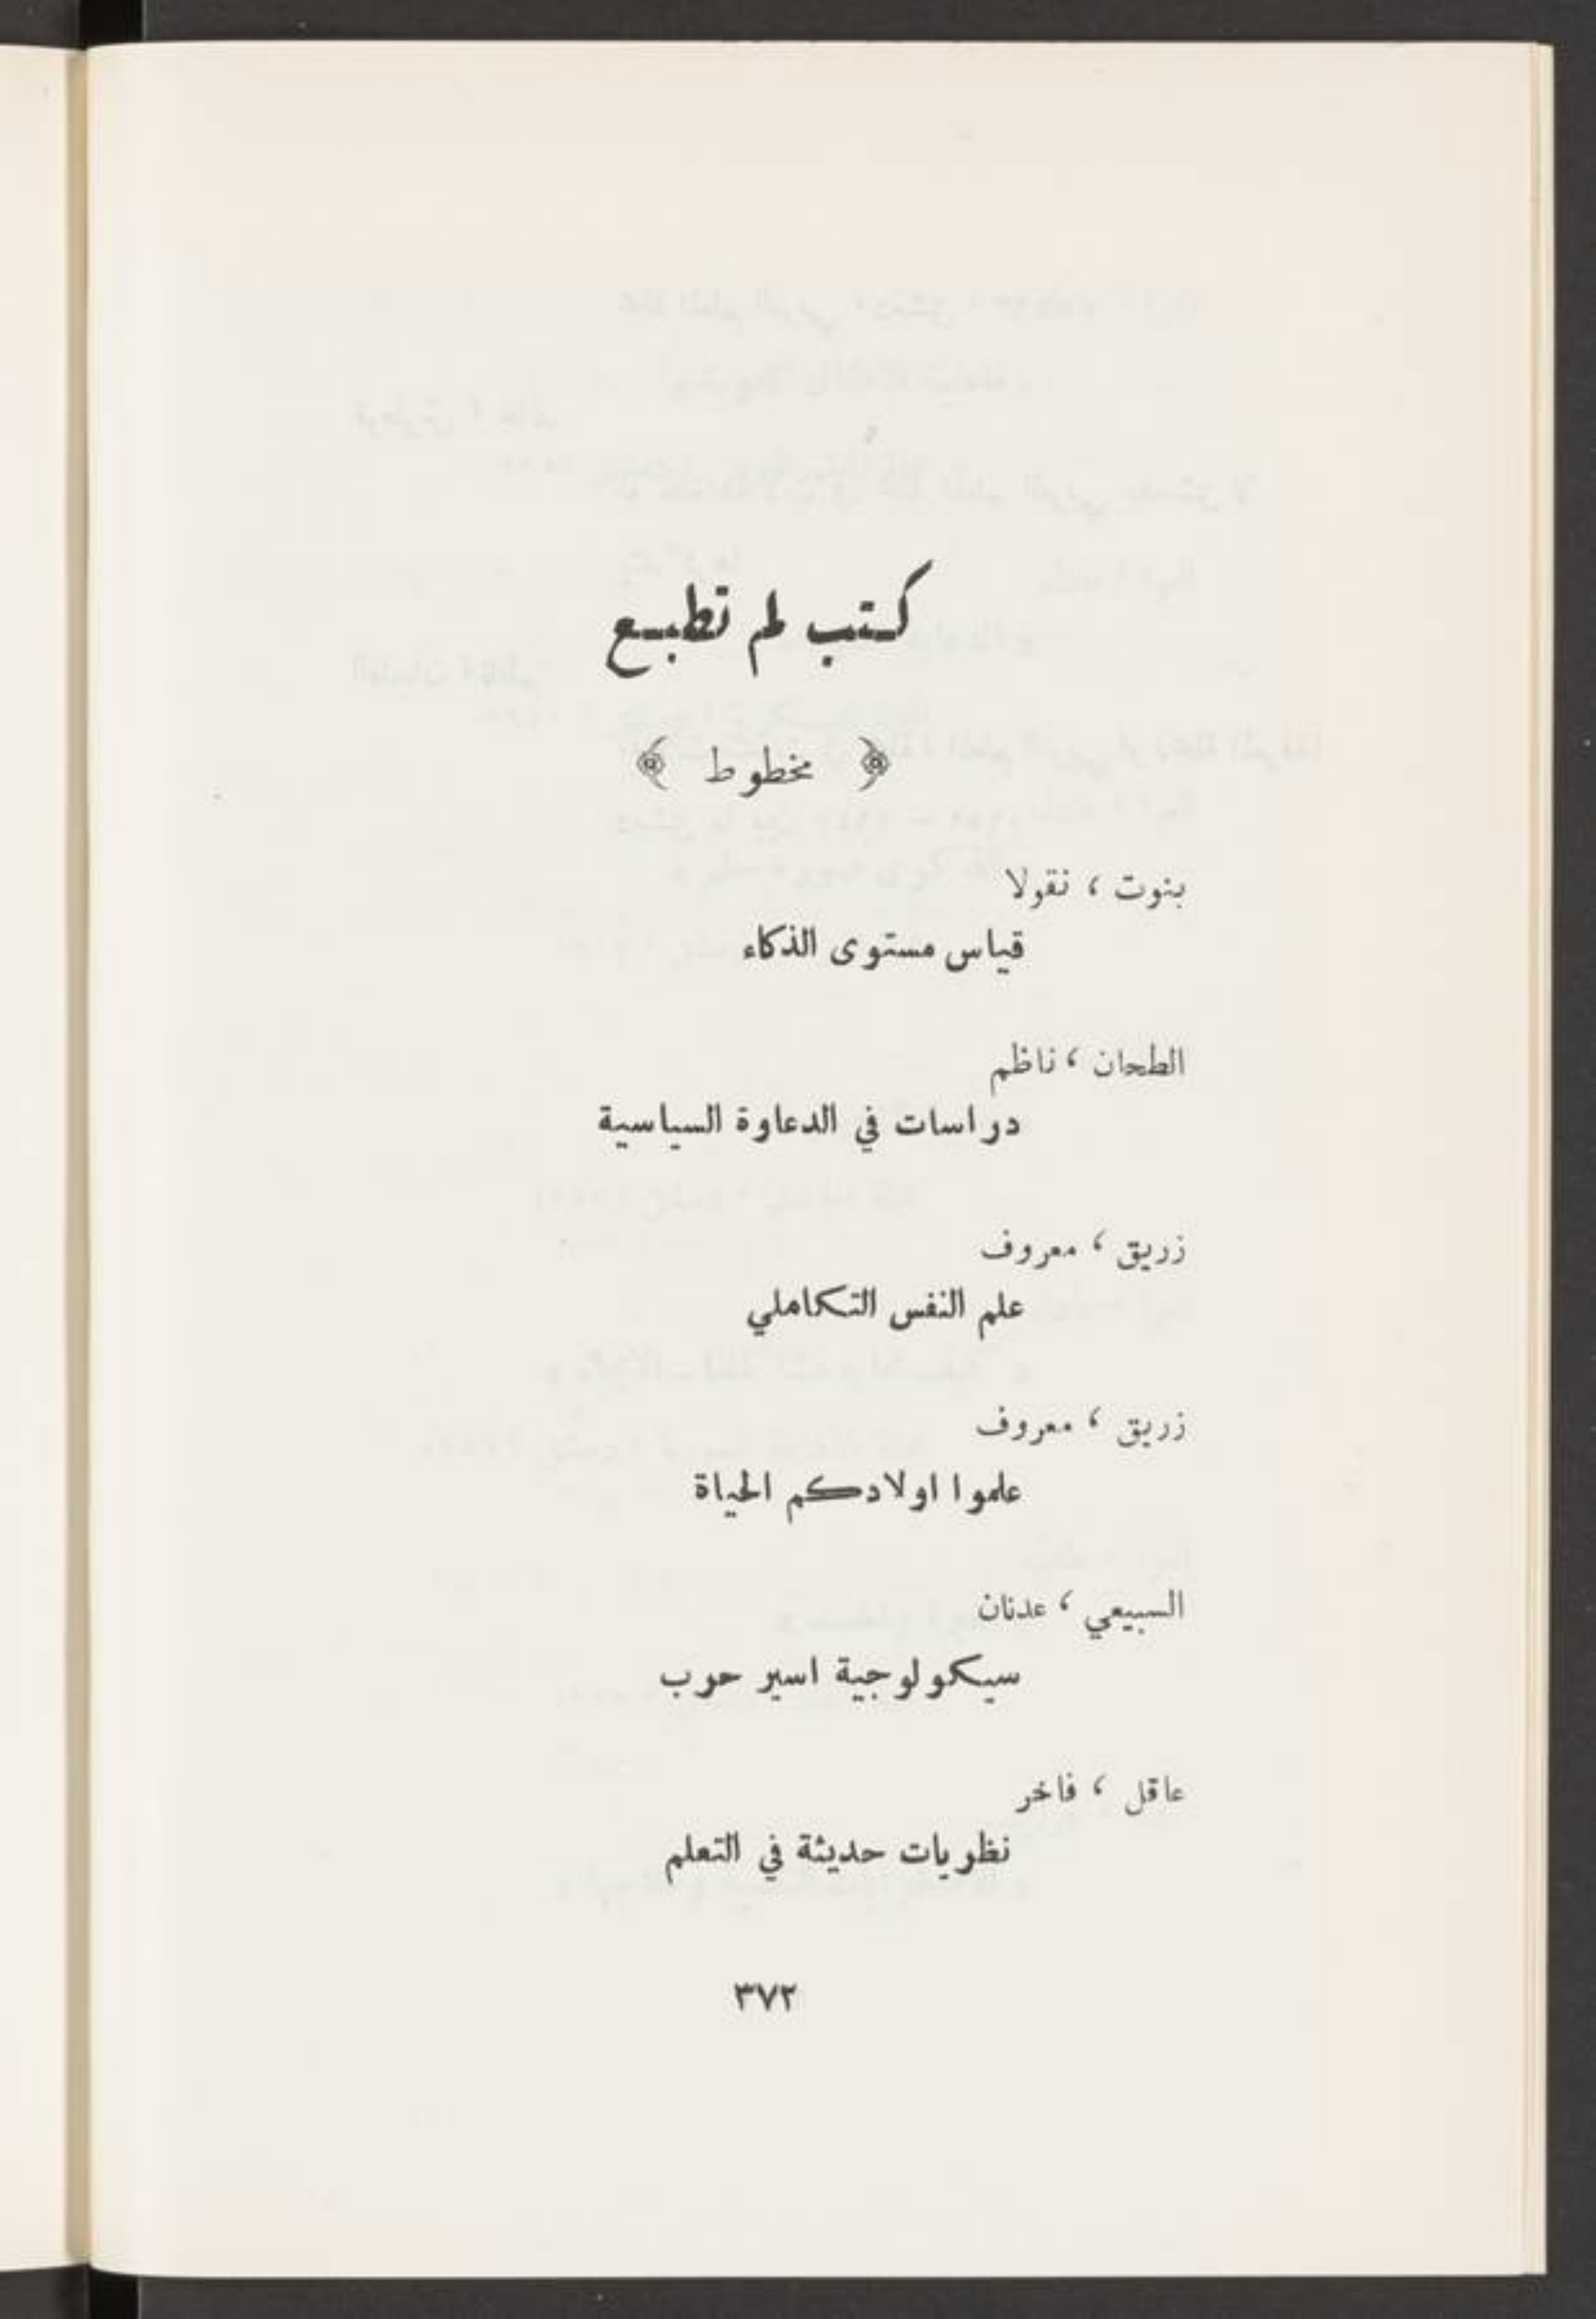 كتب لم تطبع
﴿ مخطوط ﴾
بنوت ، نقولا
قياس مستوى الذكاء
الطحان ، ناظم
دراسات في الدعاوة السياسية
زريق ، معروف
علم النفس التكاملي
زريق ، معروف
علموا اولادكم الحياة
السبيعي ، عدنان
سيكولوجية اسير حرب
عاقل ، فاخر
نظريات حديثة في التعلم
٣٧٢